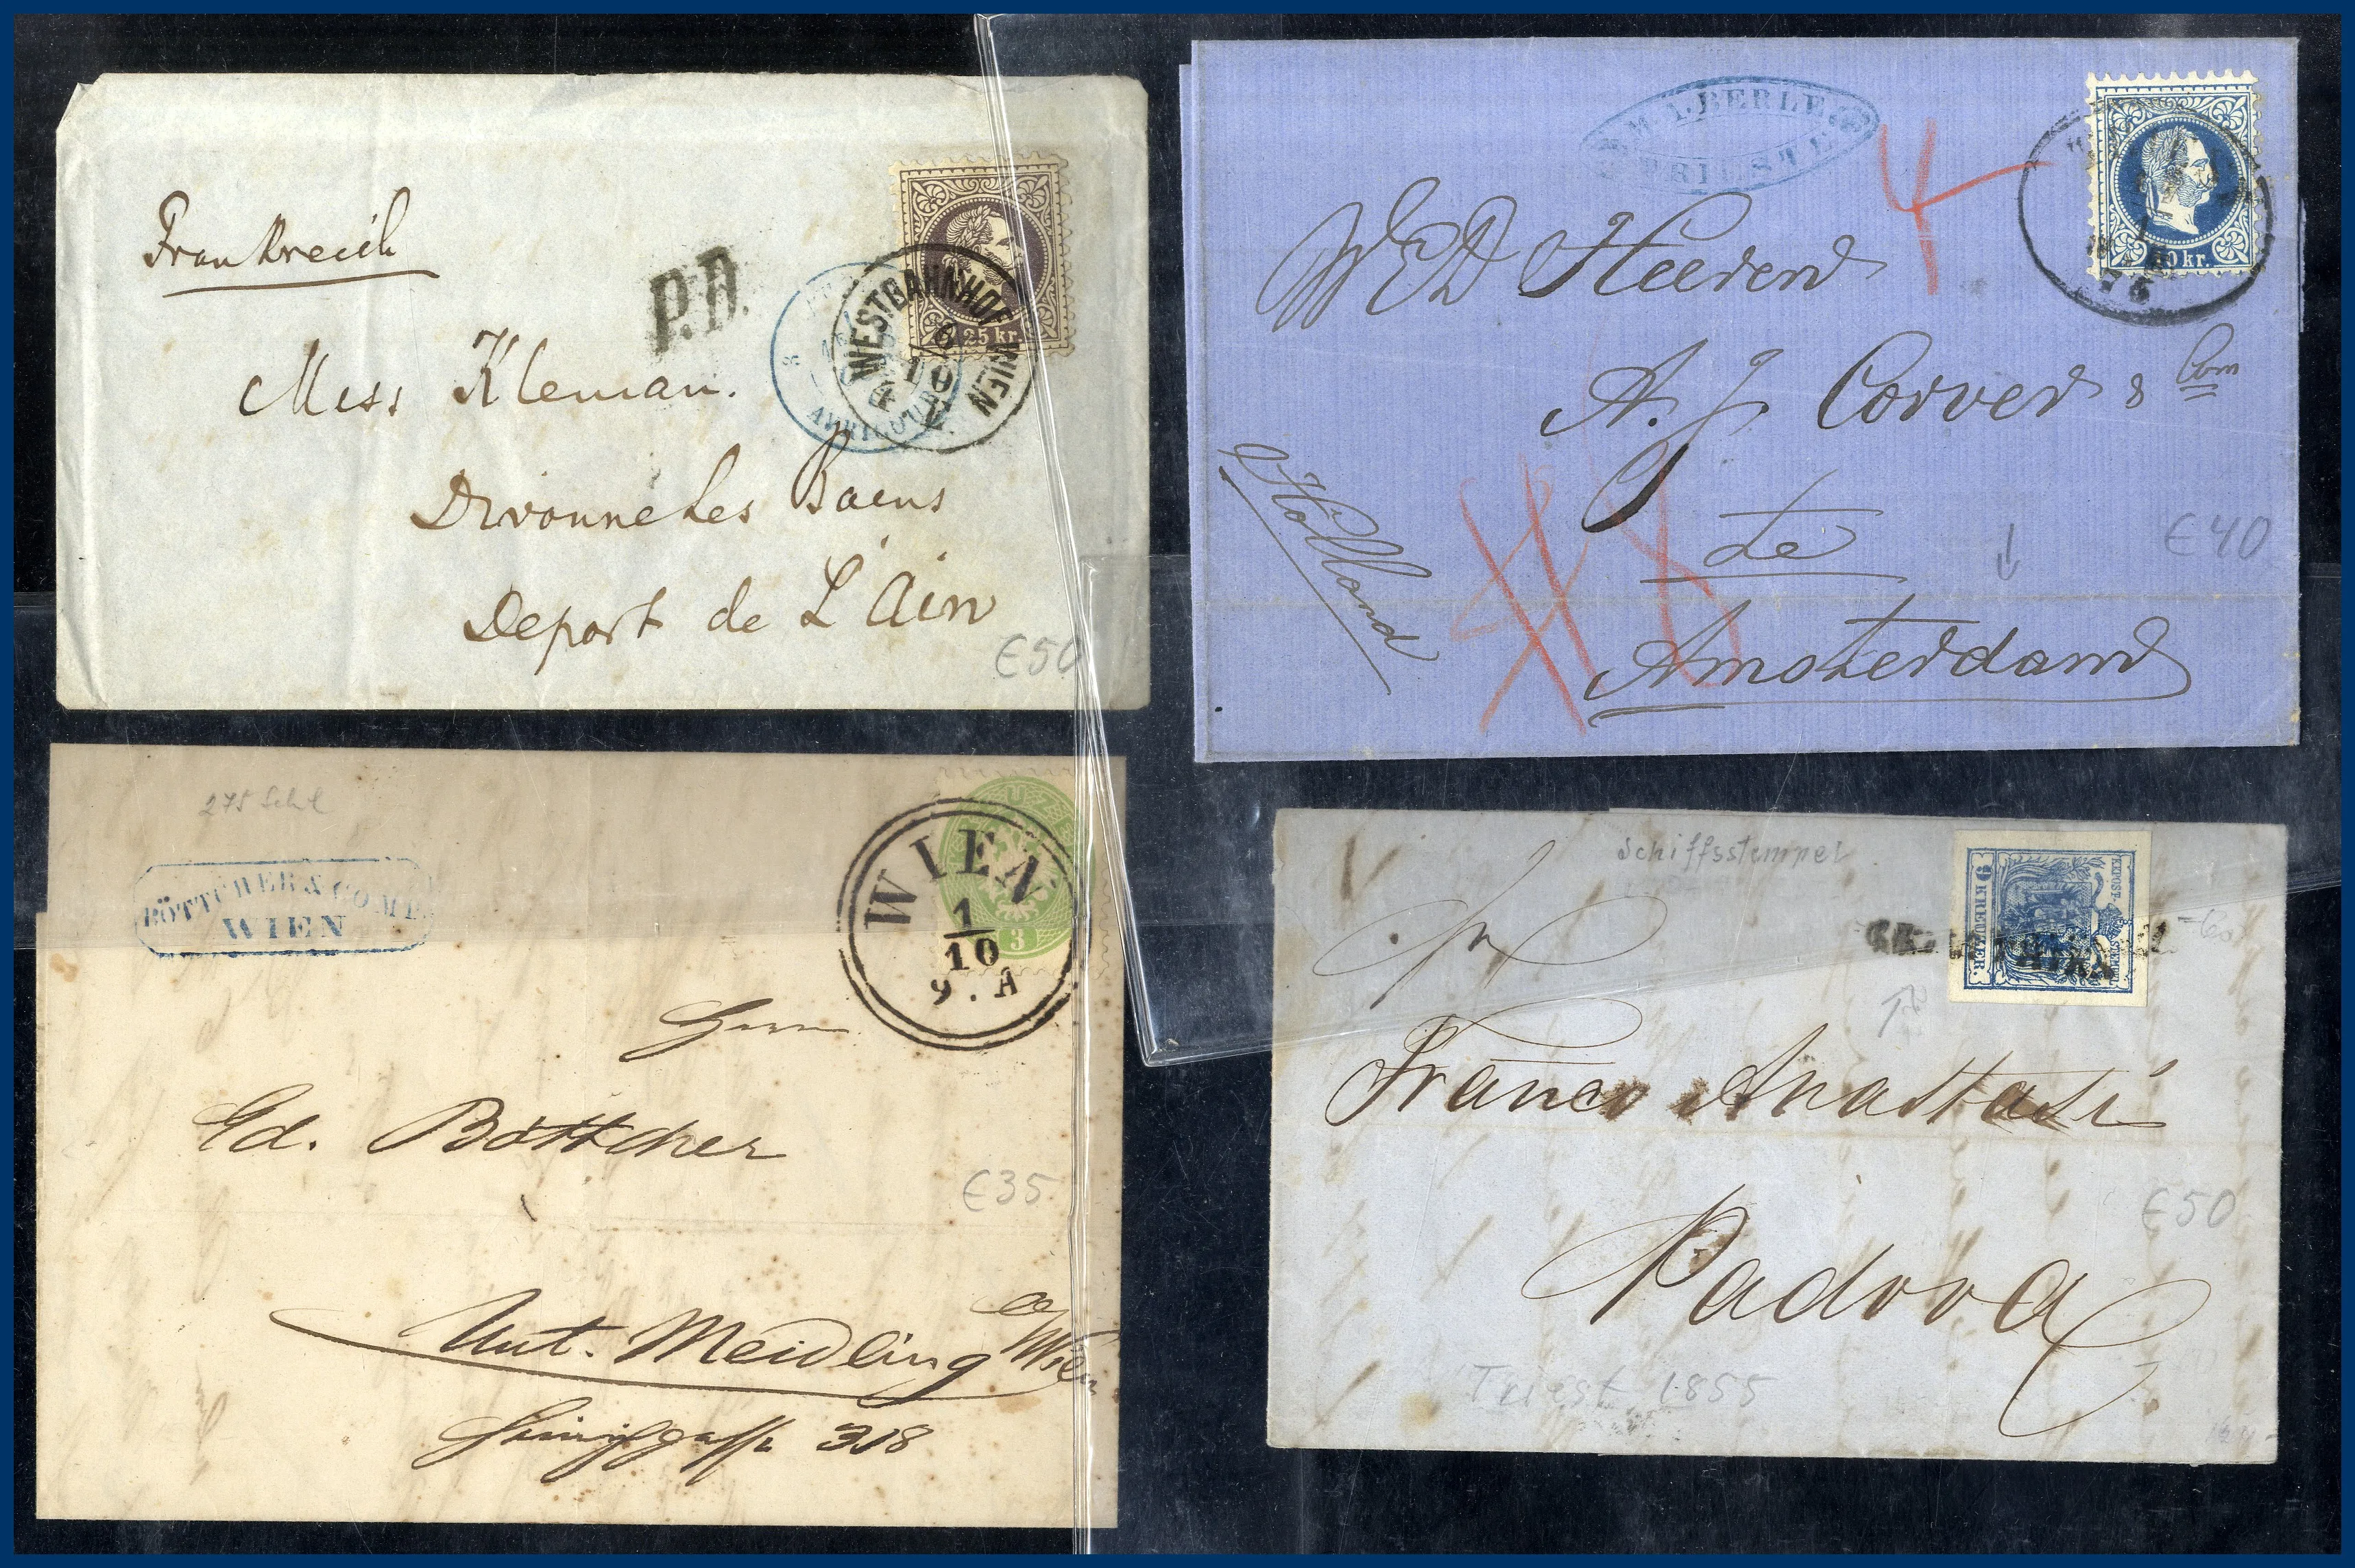 Frankreich
P.D.
25 kr.
WESTBAHNHOF WIEN
6
10
AVRICOURT
Miss Kleman.
Divonne les Bains
Depart de L'Ain
€50
M. I. BERLE
TRIESTE
10 kr.
4
W E D Heeren
A. J. Corver & Com
te
Amsterdam
Holland
€40
BÖTTCHER & COMP.
WIEN
WIEN
1
10
9. A
3
Herrn
Ed. Böttcher
€35
Unt. Meidling
Wien
318
Schiffsstempel
9 KREUZER.
Franco Anastasi
Padova
€50
Triest 1855